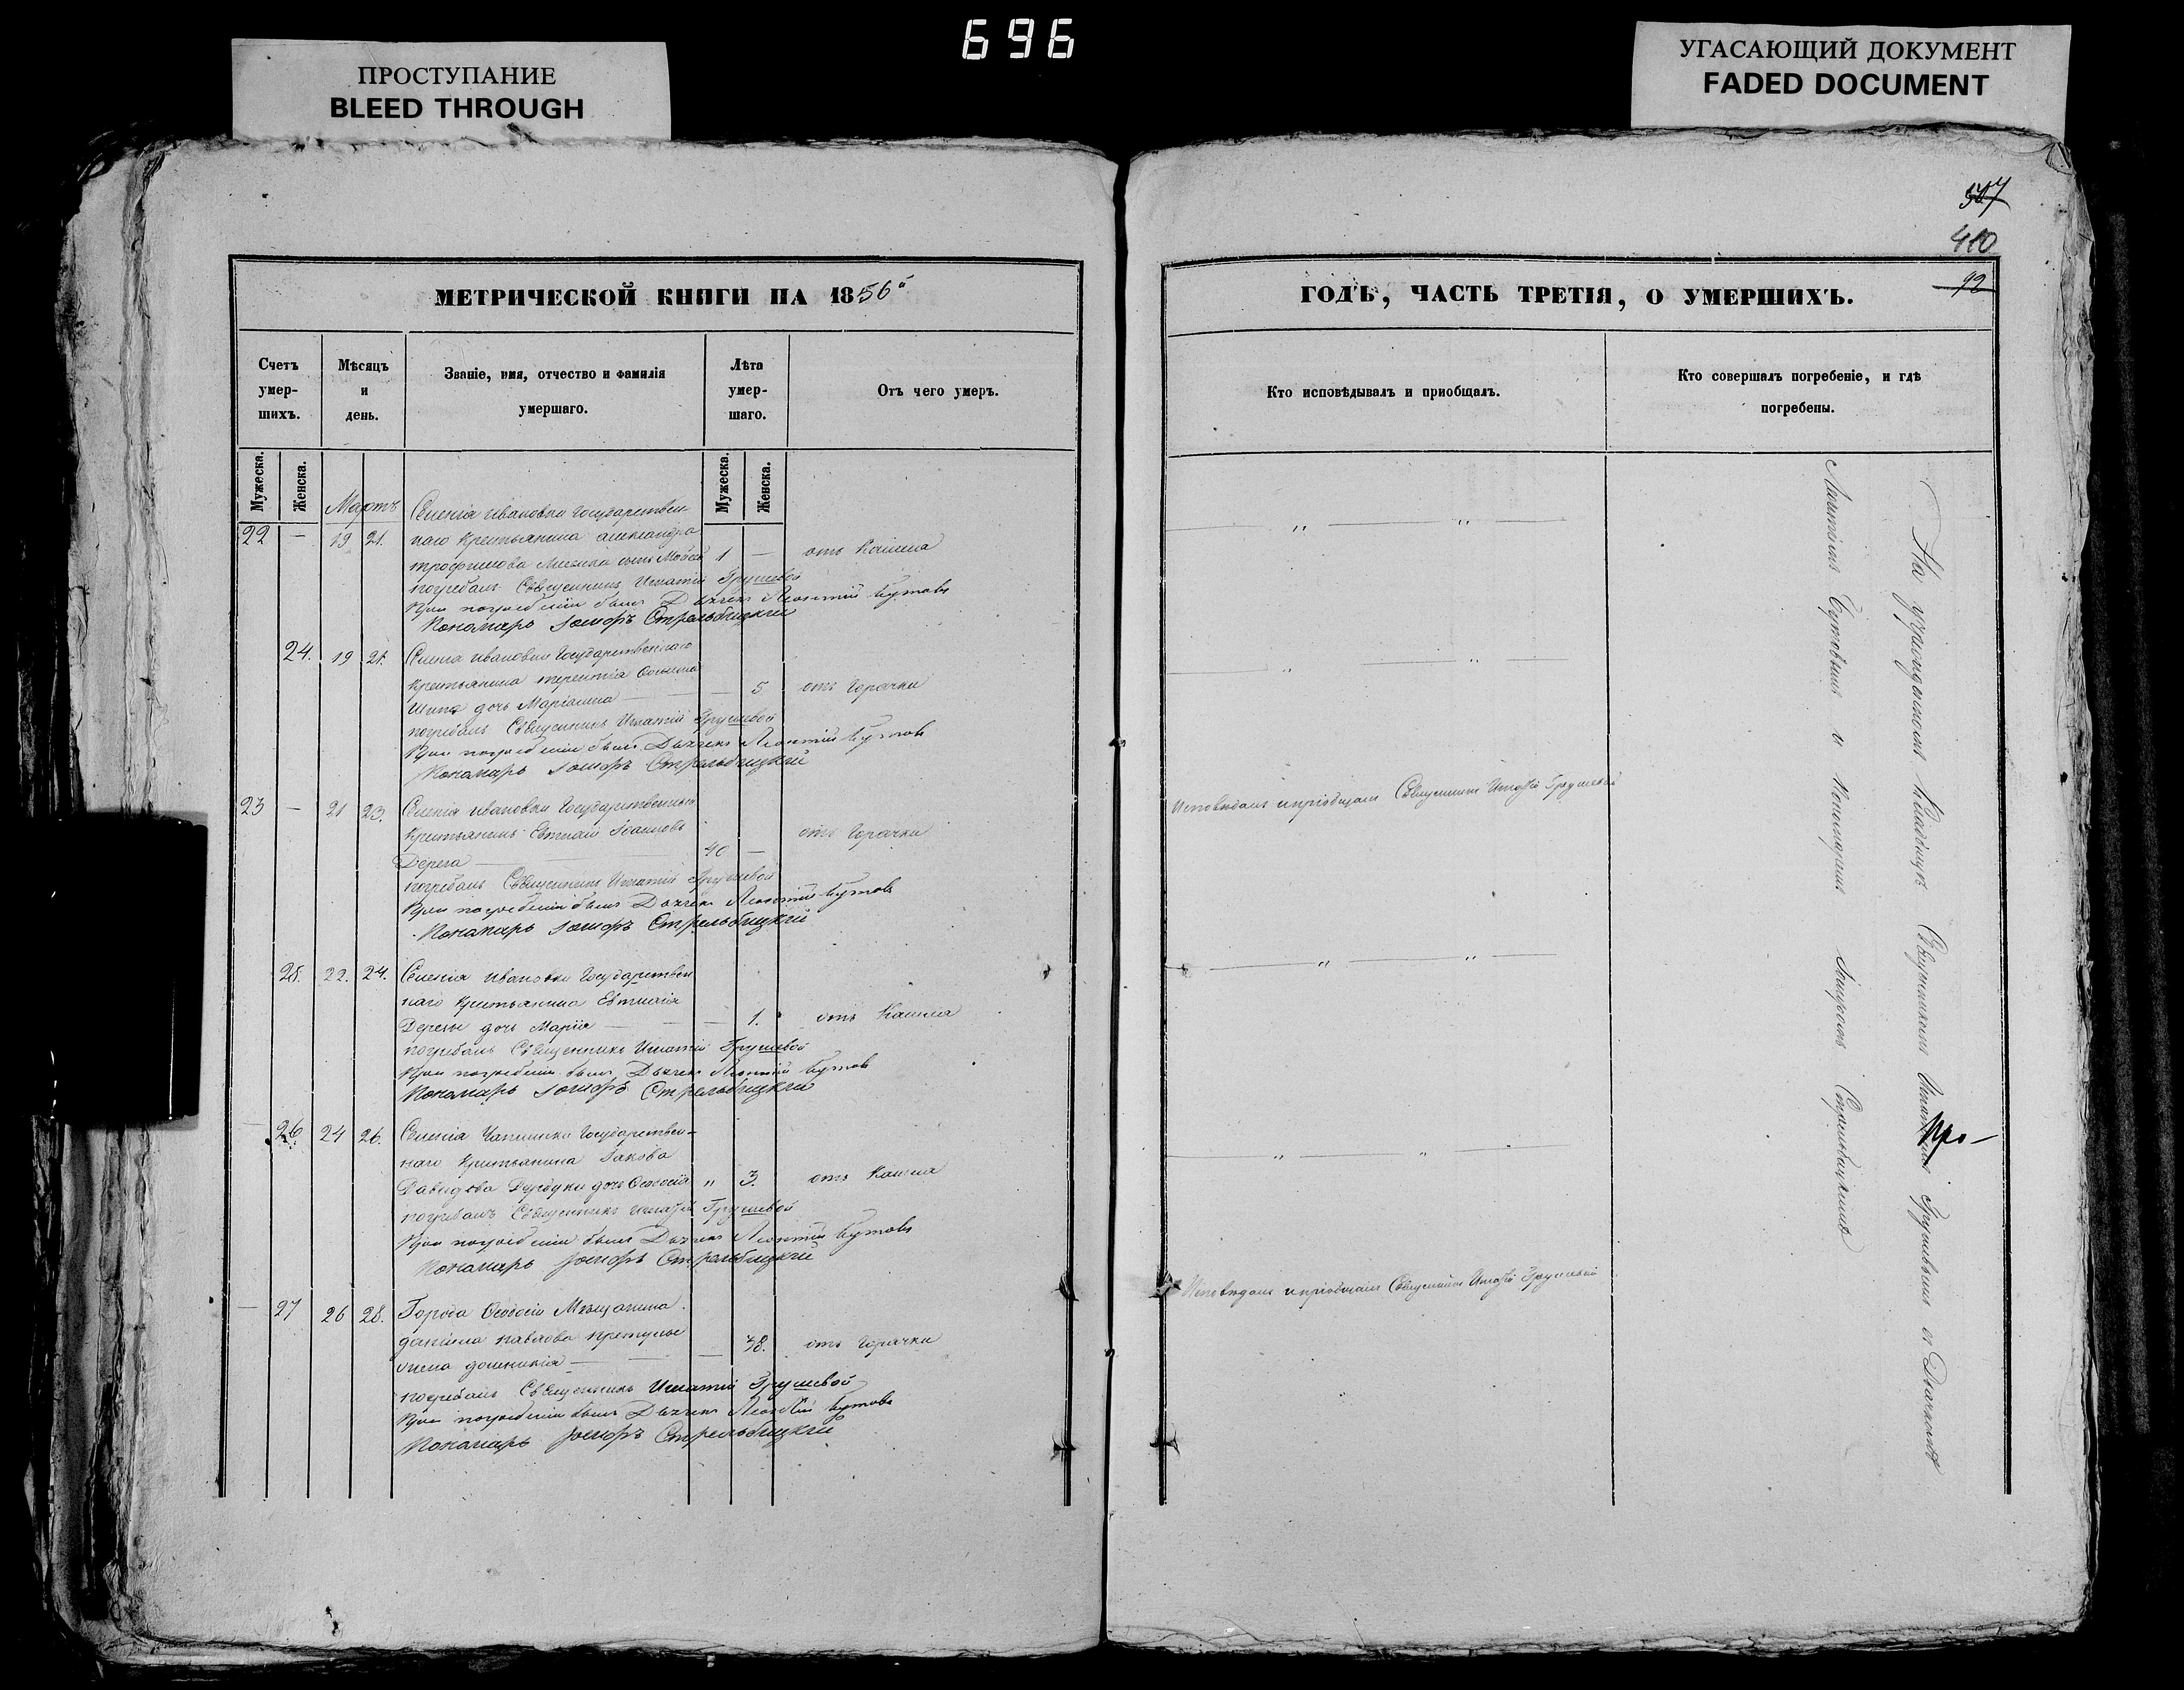 696
ПРОСТУПАНИЕ
BLEED THROUGH
УГАСАЮЩИЙ ДОКУМЕНТ
FADED DOCUMENT
507
410
92
МЕТРИЧЕСКОЙ КНИГИ НА 1856й
Счетъ умер-шихъ.
Мѣсяцъ и день.
Званіе, имя, отчество и фамилія умершаго.
Лѣта умер-шаго.
Отъ чего умеръ.
Мужеска.
Женска.
Мужеска.
Женска.
Мартъ
Селенія Ивановки Государствен
22 — 19 21. наго Крестьянина Александра
Трофимова сынъ Мойсей 1 — отъ Кашля
погребалъ Священникъ Игнатій Грушевой
При погребеніи былъ Дьячекъ Леонтій Бутовъ
Пономарь Іосифъ Стрельбицкій
24. 19 21. Селенія Ивановки Государственнаго
Крестьянина Терентія
дочь Маріанна — 5. отъ Горячки
погребалъ Священникъ Игнатій Грушевой
При погребеніи былъ Дьячекъ Леонтій Бутовъ
Пономарь Іосифъ Стрельбицкій
23 — 21 23. Селенія Ивановки Государственный
Крестьянинъ Евтихій отъ Горячки
Дереза — 40 —
погребалъ Священникъ Игнатій Грушевой
При погребеніи былъ Дьячекъ Леонтій Бутовъ
Пономарь Іосифъ Стрельбицкій
25. 22. 24. Селенія Ивановки Государствен
наго Крестьянина Евтихія
Дерезы дочь Марія — 1. отъ Кашля
погребалъ Священникъ Игнатій Грушевой
При погребеніи былъ Дьячекъ Леонтій Бутовъ
Пономарь Іосифъ Стрельбицкій
— 26. 24 26. Селенія Чаплинки Государствен-
наго Крестьянина Іакова
Давидова дочь Феодосія " 3. отъ Кашля
погребалъ Священникъ Игнатій Грушевой
При погребеніи былъ Дьячекъ Леонтій Бутовъ
Пономарь Іосифъ Стрельбицкій
— 27 26 28. Города Феодосіи Мѣщанина
Даніила Павлова
жена — 38. отъ Горячки
погребалъ Священникъ Игнатій Грушевой
При погребеніи былъ Дьячекъ Леонтій Бутовъ
Пономарь Іосифъ Стрельбицкій
ГОДЪ, ЧАСТЬ ТРЕТІЯ, О УМЕРШИХЪ.
Кто исповѣдывалъ и пріобщалъ.
Кто совершалъ погребеніе, и гдѣ погребены.
Исповѣдалъ и пріобщалъ Священникъ Игнатій Грушевой
Исповѣдалъ и пріобщалъ Священникъ Игнатій Грушевой
На учрежденномъ Кладбищѣ Священникомъ Игнатіемъ Грушевымъ съ Дьячкомъ
Леонтіемъ Бутовымъ и Пономаремъ Іосифомъ Стрельбицкимъ